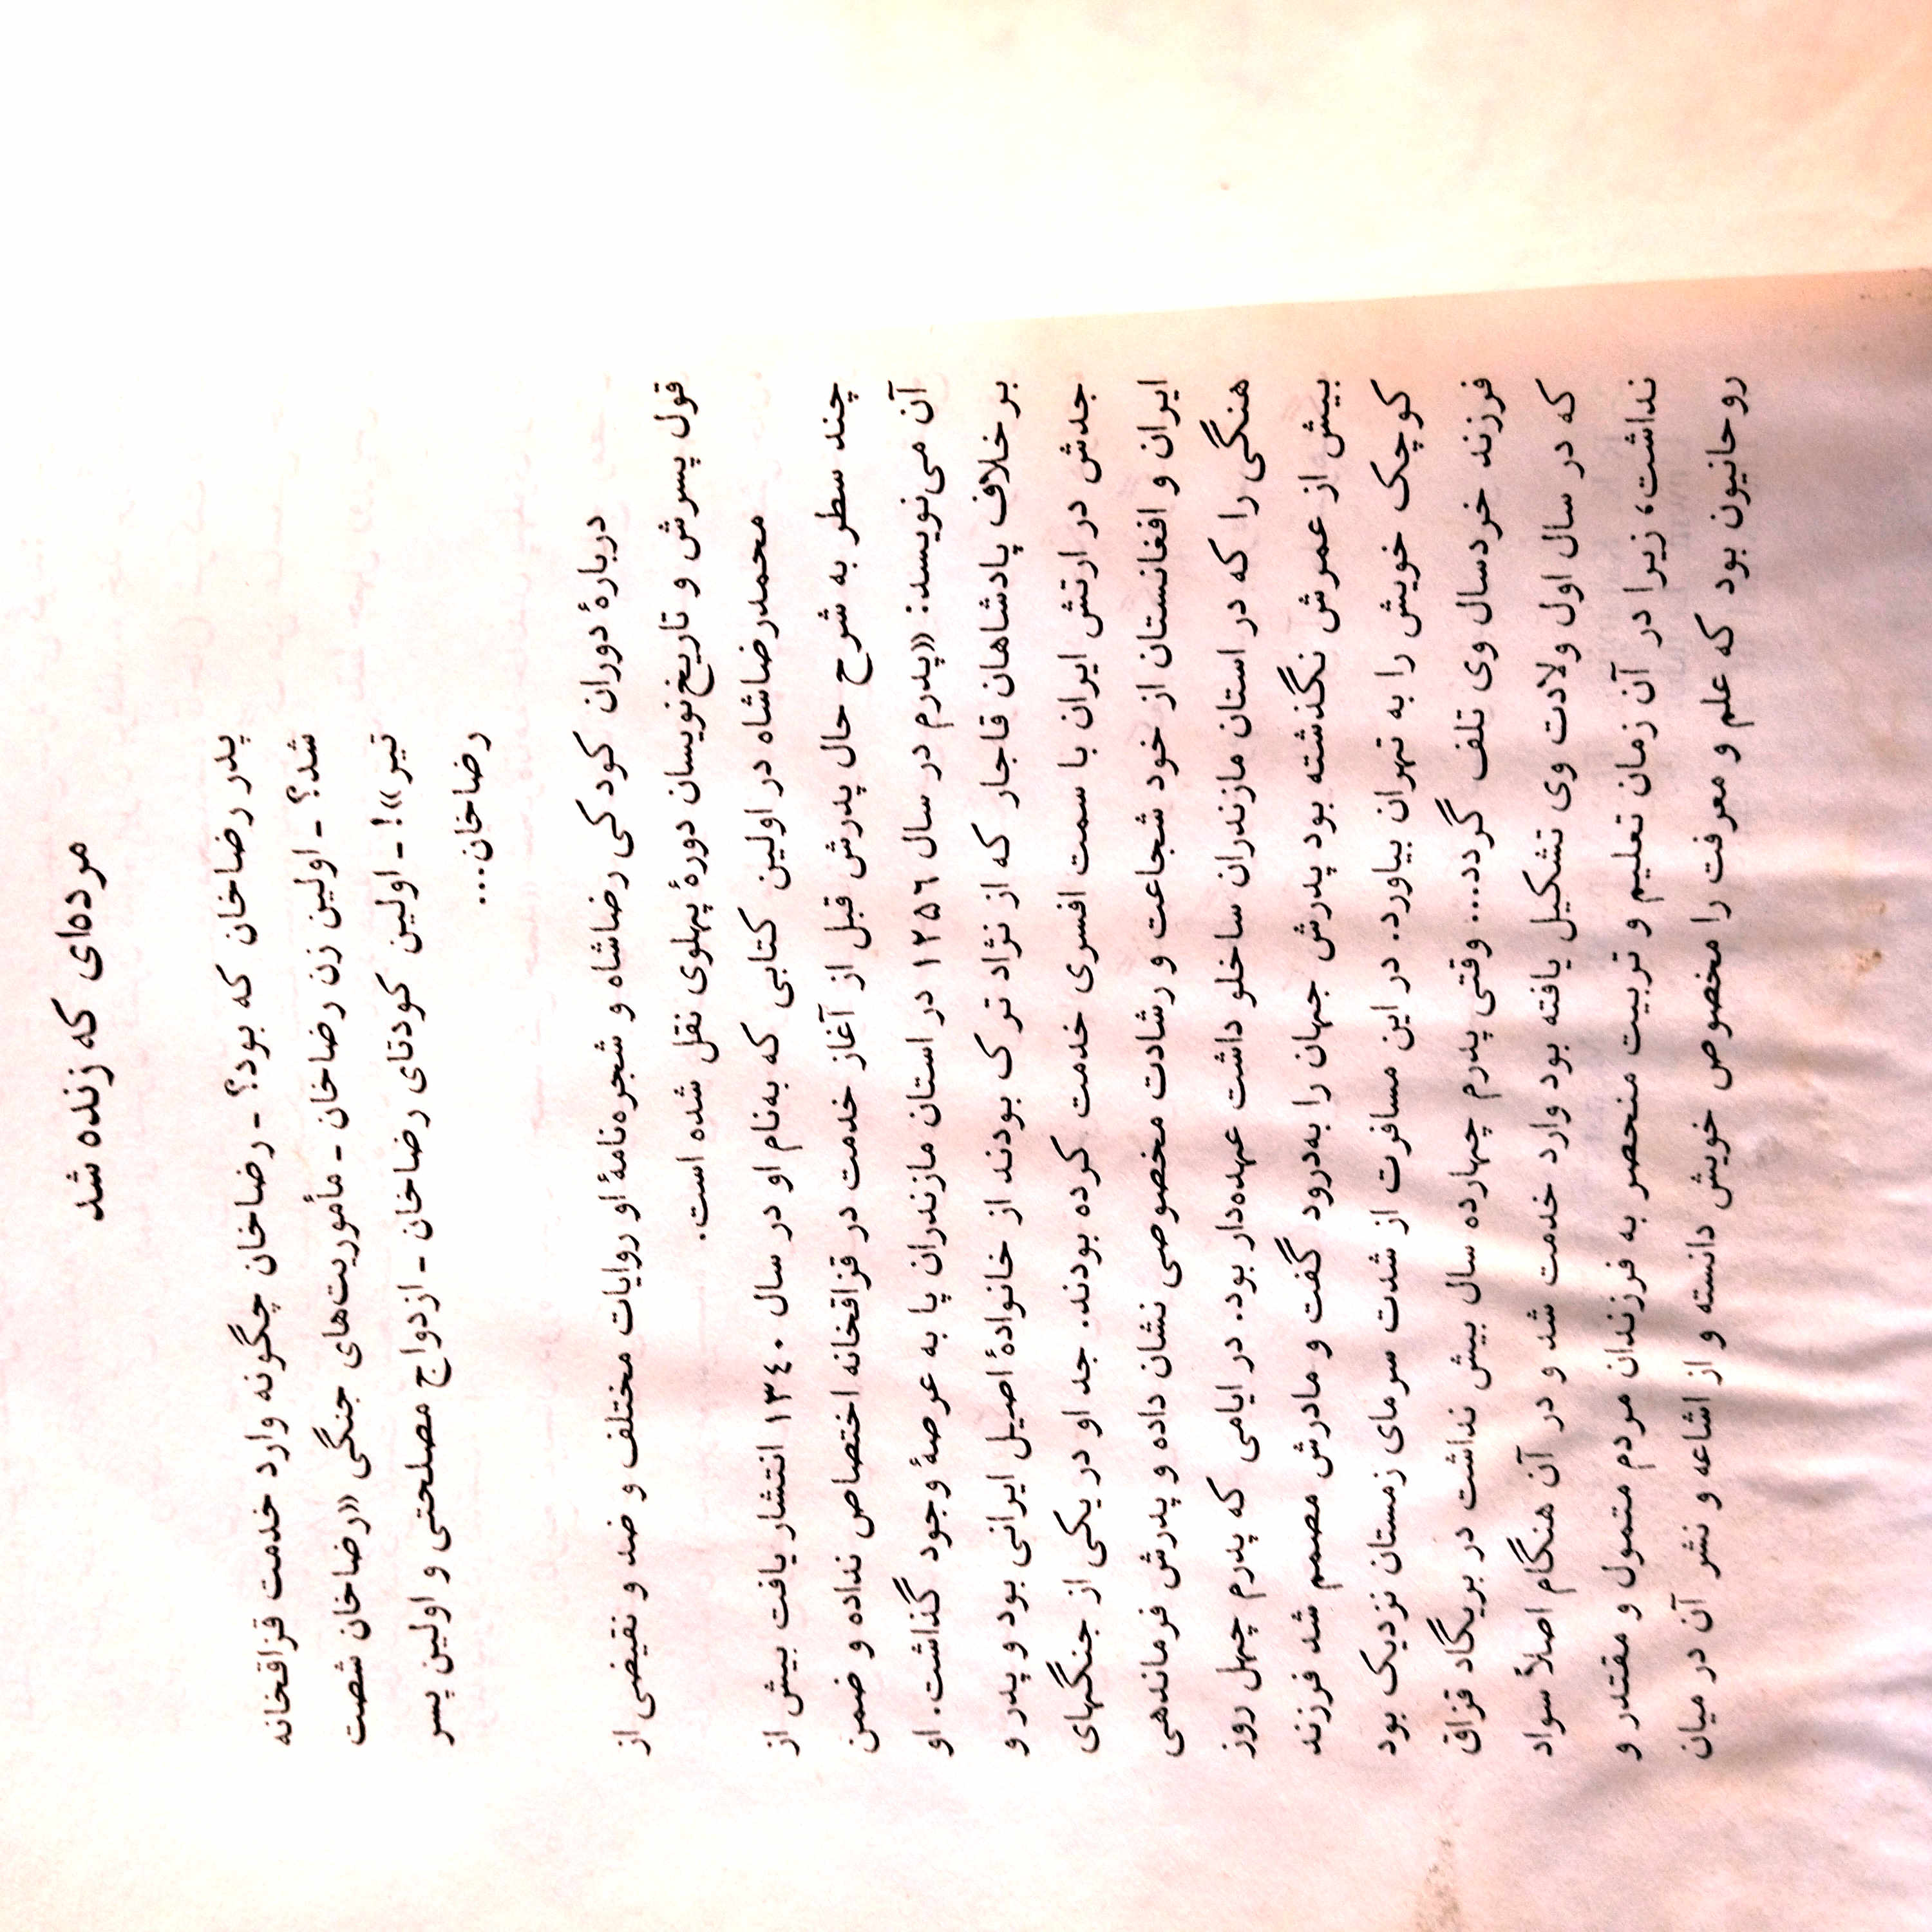 مرده‌ای که زنده شد
پدر رضاخان که بود؟ - رضاخان چگونه وارد خدمت قزاقخانه
شد؟ - اولین زن رضاخان - مأموریت‌های جنگی «رضاخان شصت
تیر»! - اولین کودتای رضاخان - ازدواج مصلحتی و اولین پسر
رضاخان...
دربارهٔ دوران کودکی رضاشاه و شجره‌نامهٔ او روایات مختلف و ضد و نقیضی از
قول پسرش و تاریخ‌نویسان دورهٔ پهلوی نقل شده است.
محمدرضاشاه در اولین کتابی که به‌نام او در سال ۱۳۴۰ انتشار یافت بیش از
چند سطر به شرح حال پدرش قبل از آغاز خدمت در قزاقخانه اختصاص نداده و ضمن
آن می‌نویسد: «پدرم در سال ۱۲۵۶ در استان مازندران پا به عرصهٔ وجود گذاشت. او
برخلاف پادشاهان قاجار که از نژاد ترک بودند از خانوادهٔ اصیل ایرانی بود و پدر و
جدش در ارتش ایران با سمت افسری خدمت کرده بودند. جد او در یکی از جنگهای
ایران و افغانستان از خود شجاعت و رشادت مخصوصی نشان داده و پدرش فرماندهی
هنگی را که در استان مازندران ساخلو داشت عهده‌دار بود. در ایامی که پدرم چهل روز
بیش از عمرش نگذشته بود پدرش جهان را به‌درود گفت و مادرش مصمم شد فرزند
کوچک خویش را به تهران بیاورد. در این مسافرت از شدت سرمای زمستان نزدیک بود
فرزند خردسال وی تلف گردد... وقتی پدرم چهارده سال بیش نداشت در بریگاد قزاق
که در سال اول ولادت وی تشکیل یافته بود وارد خدمت شد و در آن هنگام اصلاً سواد
نداشت، زیرا در آن زمان تعلیم و تربیت منحصر به فرزندان مردم متمول و مقتدر و
روحانیون بود که علم و معرفت را مخصوص خویش دانسته و از اشاعه و نشر آن در میان